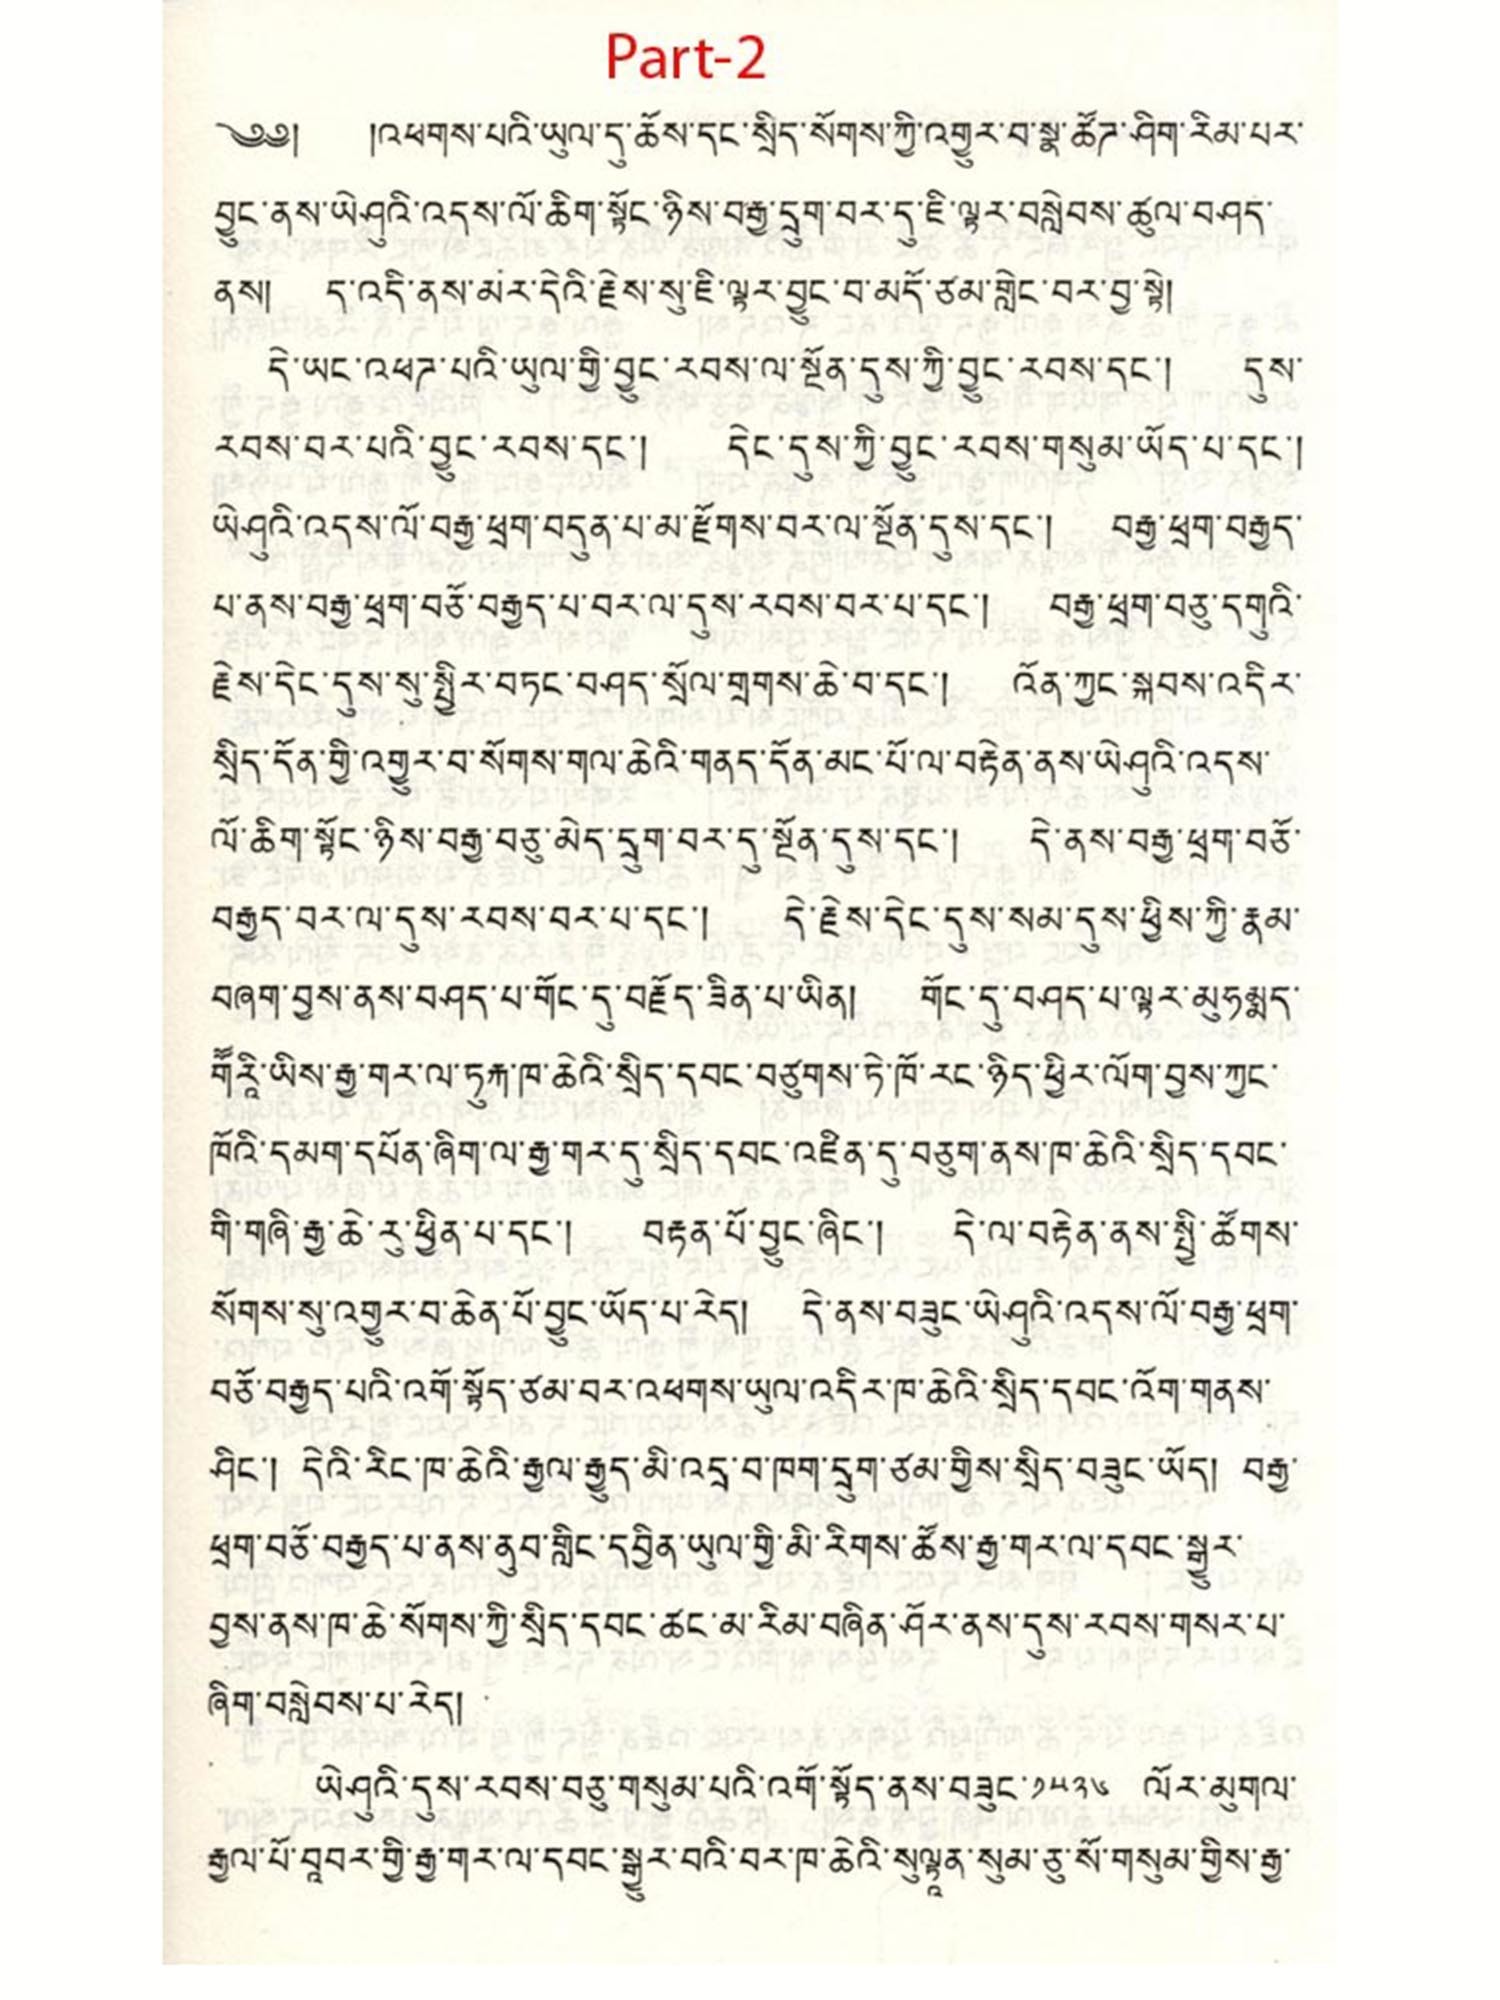 Part-2
༄༅། །འཕགས་པའི་ཡུལ་དུ་ཆོས་དང་སྲིད་སོགས་ཀྱི་འགྱུར་བ་སྣ་ཚོཊ་ཤིག་རིམ་པར་
བྱུང་ནས་ཡེ་ཤུའི་འདས་ལོ་ཆིག་སྟོང་ཉིས་བརྒྱ་དྲུག་བར་དུ་ཇི་ལྟར་བསླེབས་ཚུལ་བཤད་
ནས། ད་འདི་ནས་མར་དེའི་རྗེས་སུ་ཇི་ལྟར་བྱུང་བ་མདོ་ཙམ་གླེང་བར་བྱ་སྟེ།
དེ་ཡང་འཕཊ་པའི་ཡུལ་གྱི་བྱུང་རབས་ལ་སྔོན་དུས་ཀྱི་བྱུང་རབས་དང་། དུས་
རབས་བར་པའི་བྱུང་རབས་དང་། དེང་དུས་ཀྱི་བྱུང་རབས་གསུམ་ཡོད་པ་དང་།
ཡེ་ཤུའི་འདས་ལོ་བརྒྱ་ཕྲག་བདུན་པ་མ་རྫོགས་བར་ལ་སྔོན་དུས་དང་། བརྒྱ་ཕྲག་བརྒྱད་
པ་ནས་བརྒྱ་ཕྲག་བཅོ་བརྒྱད་པ་བར་ལ་དུས་རབས་བར་པ་དང་། བརྒྱ་ཕྲག་བཅུ་དགུའི་
རྗེས་དེང་དུས་སུ་སྤྱིར་བཏང་བཤད་སྲོལ་གྲགས་ཆེ་བ་དང་། འོན་ཀྱང་སྐབས་འདིར་
སྲིད་དོན་གྱི་འགྱུར་བ་སོགས་གལ་ཆེའི་གནད་དོན་མང་པོ་ལ་བརྟེན་ནས་ཡེ་ཤུའི་འདས་
ལོ་ཆིག་སྟོང་ཉིས་བརྒྱ་བཅུ་མེད་དྲུག་བར་དུ་སྔོན་དུས་དང་། དེ་ནས་བརྒྱ་ཕྲག་བཅོ་
བརྒྱད་བར་ལ་དུས་རབས་བར་པ་དང་། དེ་རྗེས་དེང་དུས་སམ་དུས་ཕྱིས་ཀྱི་རྣམ་
བཞག་བྱས་ནས་བཤད་པ་གོང་དུ་བརྗོད་ཟིན་པ་ཡིན། གོང་དུ་བཤད་པ་ལྟར་མུཧམྨད་
གཽརཱི་ཡིས་རྒྱ་གར་ལ་ཏུརྐ་ཁ་ཆེའི་སྲིད་དབང་བཙུགས་ཏེ་ཁོ་རང་ཉིད་ཕྱིར་ལོག་བྱས་ཀྱང་
ཁོའི་དམག་དཔོན་ཞིག་ལ་རྒྱ་གར་དུ་སྲིད་དབང་འཛིན་དུ་བཅུག་ནས་ཁ་ཆེའི་སྲིད་དབང་
གི་གཞི་རྒྱ་ཆེ་རུ་ཕྱིན་པ་དང་། བརྟན་པོ་བྱུང་ཞིང་། དེ་ལ་བརྟེན་ནས་སྤྱི་ཚོགས་
སོགས་སུ་འགྱུར་བ་ཆེན་པོ་བྱུང་ཡོད་པ་རེད། དེ་ནས་བཟུང་ཡེ་ཤུའི་འདས་ལོ་བརྒྱ་ཕྲག་
བཅོ་བརྒྱད་པའི་འགོ་སྟོད་ཙམ་བར་འཕགས་ཡུལ་འདིར་ཁ་ཆེའི་སྲིད་དབང་འོག་གནས་
ཤིང་། དེའི་རིང་ཁ་ཆེའི་རྒྱལ་རྒྱུད་མི་འདྲ་བ་ཁག་དྲུག་ཙམ་གྱིས་སྲིད་བཟུང་ཡོད། བརྒྱ་
ཕྲག་བཅོ་བརྒྱད་པ་ནས་ནུབ་གླིང་དབྱིན་ཡུལ་གྱི་མི་རིགས་ཚོས་རྒྱ་གར་ལ་དབང་སྒྱུར་
བྱས་ནས་ཁ་ཆེ་སོགས་ཀྱི་སྲིད་དབང་ཚང་མ་རིམ་བཞིན་ཤོར་ནས་དུས་རབས་གསར་པ་
ཞིག་བསླེབས་པ་རེད།
ཡེ་ཤུའི་དུས་རབས་བཅུ་གསུམ་པའི་འགོ་སྟོད་ནས་བཟུང་༡༥༢༦ ལོར་མུགལ་
རྒྱལ་པོ་བཱབར་གྱི་རྒྱ་གར་ལ་དབང་སྒྱུར་བའི་བར་ཁ་ཆེའི་སུལྟཱན་སུམ་ཅུ་སོ་གསུམ་གྱིས་རྒྱ་